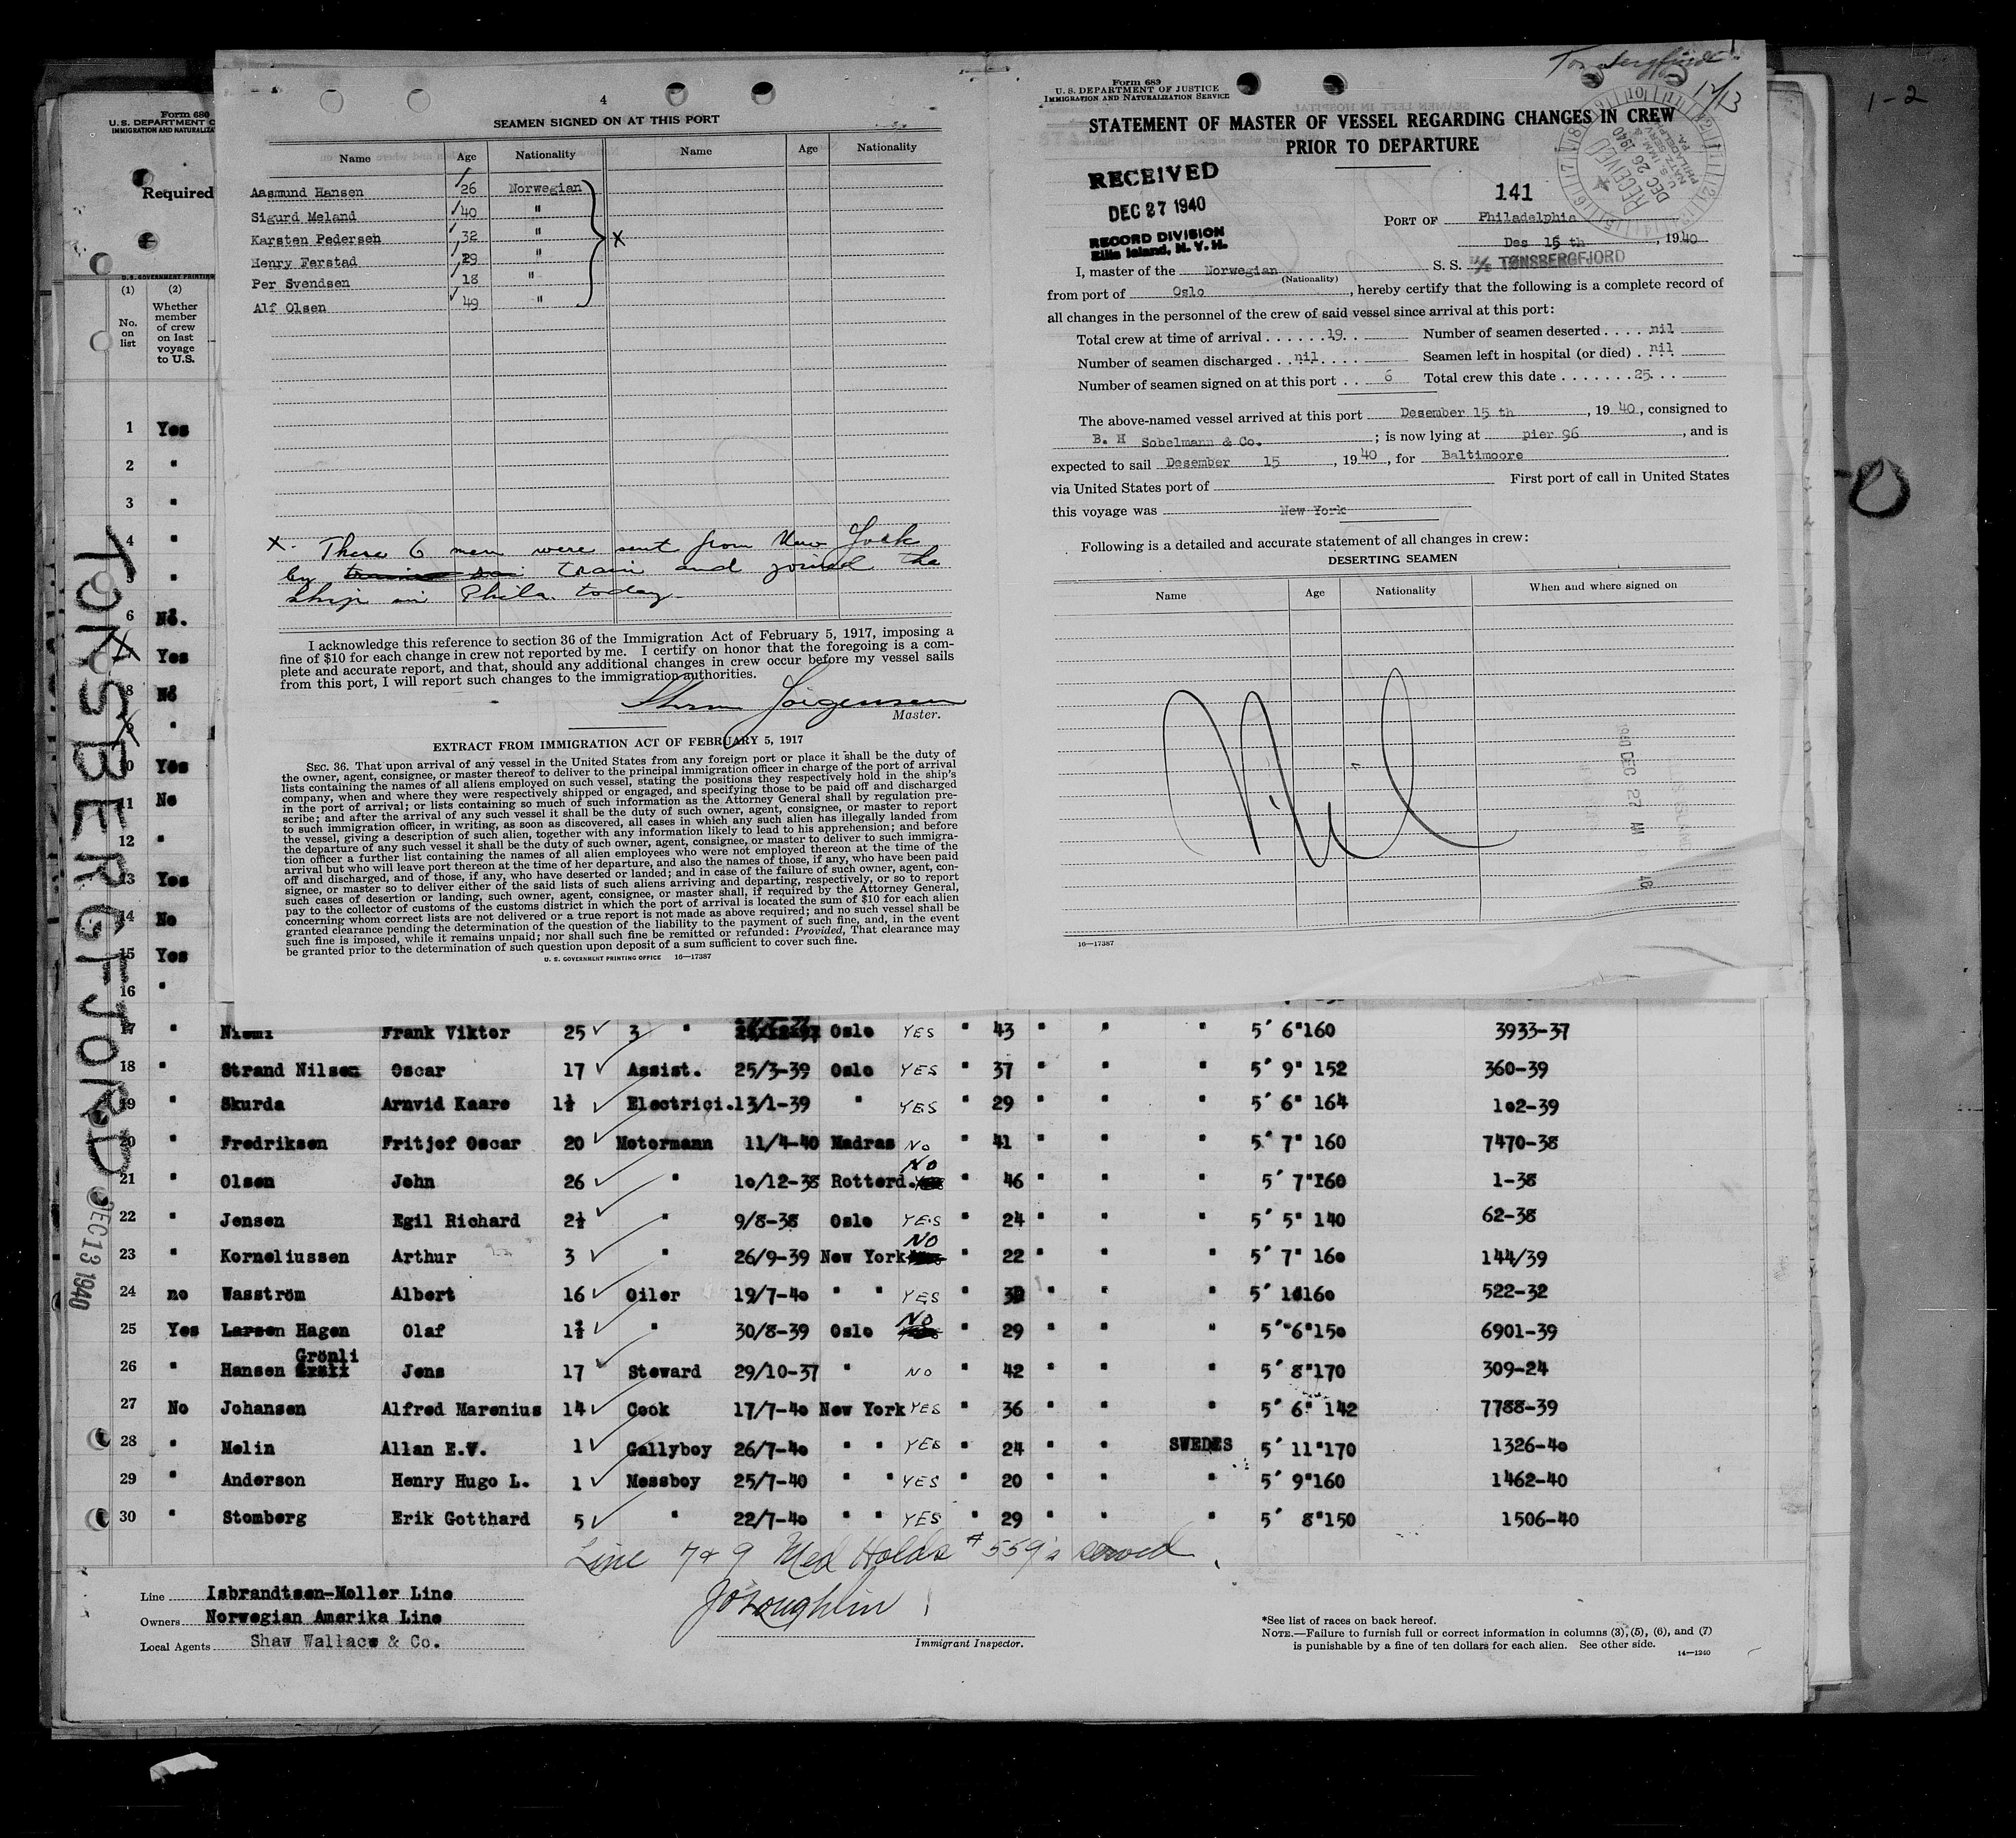 Form 680
U. S. DEPARTMENT O
IMMIGRATION AND NATURALIZA
Required
U. S. GOVERNMENT PRINTING
(1) (2)
No. on list
Whether member of crew on last voyage to U.S.
1 Yes
2 "
3 "
4 "
"
6 No.
Yes
8 No
"
10 Yes
11 No
12 "
13 Yes
14 No
15 Yes
16 "
TONSBERGFJORD
DEC 13 1940
4
SEAMEN SIGNED ON AT THIS PORT
Name Age Nationality Name Age Nationality
Aasmund Hansen 26 Norwegian
Sigurd Meland 40 "
Karsten Pedersen 32 " X
Henry Ferstad 29 "
Per Svendsen 18 "
Alf Olsen 49 "
X. These 6 men were sent from New York
by train and joined the
ship in Phila. today.
I acknowledge this reference to section 36 of the Immigration Act of February 5, 1917, imposing a
fine of $10 for each change in crew not reported by me. I certify on honor that the foregoing is a com-
plete and accurate report, and that, should any additional changes in crew occur before my vessel sails
from this port, I will report such changes to the immigration authorities.
Jörgensen
Master.
EXTRACT FROM IMMIGRATION ACT OF FEBRUARY 5, 1917
SEC. 36. That upon arrival of any vessel in the United States from any foreign port or place it shall be the duty of
the owner, agent, consignee, or master thereof to deliver to the principal immigration officer in charge of the port of arrival
lists containing the names of all aliens employed on such vessel, stating the positions they respectively hold in the ship's
company, when and where they were respectively shipped or engaged, and specifying those to be paid off and discharged
in the port of arrival; or lists containing so much of such information as the Attorney General shall by regulation pre-
scribe; and after the arrival of any such vessel it shall be the duty of such owner, agent, consignee, or master to report
to such immigration officer, in writing, as soon as discovered, all cases in which any such alien has illegally landed from
the vessel, giving a description of such alien, together with any information likely to lead to his apprehension; and before
the departure of any such vessel it shall be the duty of such owner, agent, consignee, or master to deliver to such immigra-
tion officer a further list containing the names of all alien employees who were not employed thereon at the time of the
arrival but who will leave port thereon at the time of her departure, and also the names of those, if any, who have been paid
off and discharged, and of those, if any, who have deserted or landed; and in case of the failure of such owner, agent, con-
signee, or master so to deliver either of the said lists of such aliens arriving and departing, respectively, or so to report
such cases of desertion or landing, such owner, agent, consignee, or master shall, if required by the Attorney General,
pay to the collector of customs of the customs district in which the port of arrival is located the sum of $10 for each alien
concerning whom correct lists are not delivered or a true report is not made as above required; and no such vessel shall be
granted clearance pending the determination of the question of the liability to the payment of such fine, and, in the event
such fine is imposed, while it remains unpaid; nor shall such fine be remitted or refunded: Provided, That clearance may
be granted prior to the determination of such question upon deposit of a sum sufficient to cover such fine.
U. S. GOVERNMENT PRINTING OFFICE 16—17387
Form 689
U. S. DEPARTMENT OF JUSTICE
IMMIGRATION AND NATURALIZATION SERVICE
Tonsbergfjord
12/13
1-2
STATEMENT OF MASTER OF VESSEL REGARDING CHANGES IN CREW
PRIOR TO DEPARTURE
RECEIVED
DEC 27 1940
RECORD DIVISION
Ellis Island, N. Y. H.
RECEIVED
DEC 26 1940
141
PORT OF Philadelphia
Des 15 th, 1940
I, master of the Norwegian S. S. M/S TØNSBERGFJORD
(Nationality)
from port of Oslo, hereby certify that the following is a complete record of
all changes in the personnel of the crew of said vessel since arrival at this port:
Total crew at time of arrival 19 Number of seamen deserted nil
Number of seamen discharged nil Seamen left in hospital (or died) nil
Number of seamen signed on at this port 6 Total crew this date 25
The above-named vessel arrived at this port Desember 15 th, 1940, consigned to
B. H Sobelmann & Co.; is now lying at pier 96, and is
expected to sail Desember 15, 1940, for Baltimoore
via United States port of First port of call in United States
this voyage was New York
Following is a detailed and accurate statement of all changes in crew:
DESERTING SEAMEN
Name Age Nationality When and where signed on
Nil
1940 DEC 27
16—17387
17 " Niemi Frank Viktor 25 3 " Oslo YES " 43 " " " 5' 6" 160 3933-37
18 " Strand Nilsen Oscar 17 Assist. 25/3-39 Oslo YES " 37 " " " 5' 9" 152 360-39
19 " Skurda Arnvid Kaare 1½ Electrici. 13/1-39 " YES " 29 " " " 5' 6" 164 102-39
20 " Fredriksen Fritjof Oscar 20 Motormann 11/4-40 Madras No " 41 " " " 5' 7" 160 7470-38
21 " Olsen John 26 " 10/12-38 Rotterd. NO " 46 " " " 5' 7" 160 1-38
22 " Jensen Egil Richard 2½ " 9/8-38 Oslo YES " 24 " " " 5' 5" 140 62-38
23 " Korneliussen Arthur 3 " 26/9-39 New York NO " 22 " " " 5' 7" 160 144/39
24 no Wasström Albert 16 Oiler 19/7-40 " " YES " " " " 5' 160 522-32
25 Yes Larsen Hagen Olaf 1½ " 30/8-39 Oslo No " 29 " " " 5' 6" 150 6901-39
26 " Hansen Grönli Jens 17 Steward 29/10-37 " NO " 42 " " " 5' 8" 170 309-24
27 No Johansen Alfred Marenius 14 Cook 17/7-40 New York YES " 36 " " " 5' 6" 142 7788-39
28 " Melin Allan E.V. 1 Gallyboy 26/7-40 " " YES " 24 " " SWEDES 5' 11" 170 1326-40
29 " Anderson Henry Hugo L. 1 Messboy 25/7-40 " " YES " 20 " " " 5' 9" 160 1462-40
30 " Stomberg Erik Gotthard 5 " 22/7-40 " " YES " 29 " " " 5' 8" 150 1506-40
Line 7 & 9 Med Holds #559's served
J O'Loughlin
Immigrant Inspector.
Line Isbrandtsen-Moller Line
Owners Norwegian Amerika Line
Local Agents Shaw Wallace & Co.
*See list of races on back hereof.
NOTE.—Failure to furnish full or correct information in columns (3), (5), (6), and (7)
is punishable by a fine of ten dollars for each alien. See other side.
14—1240